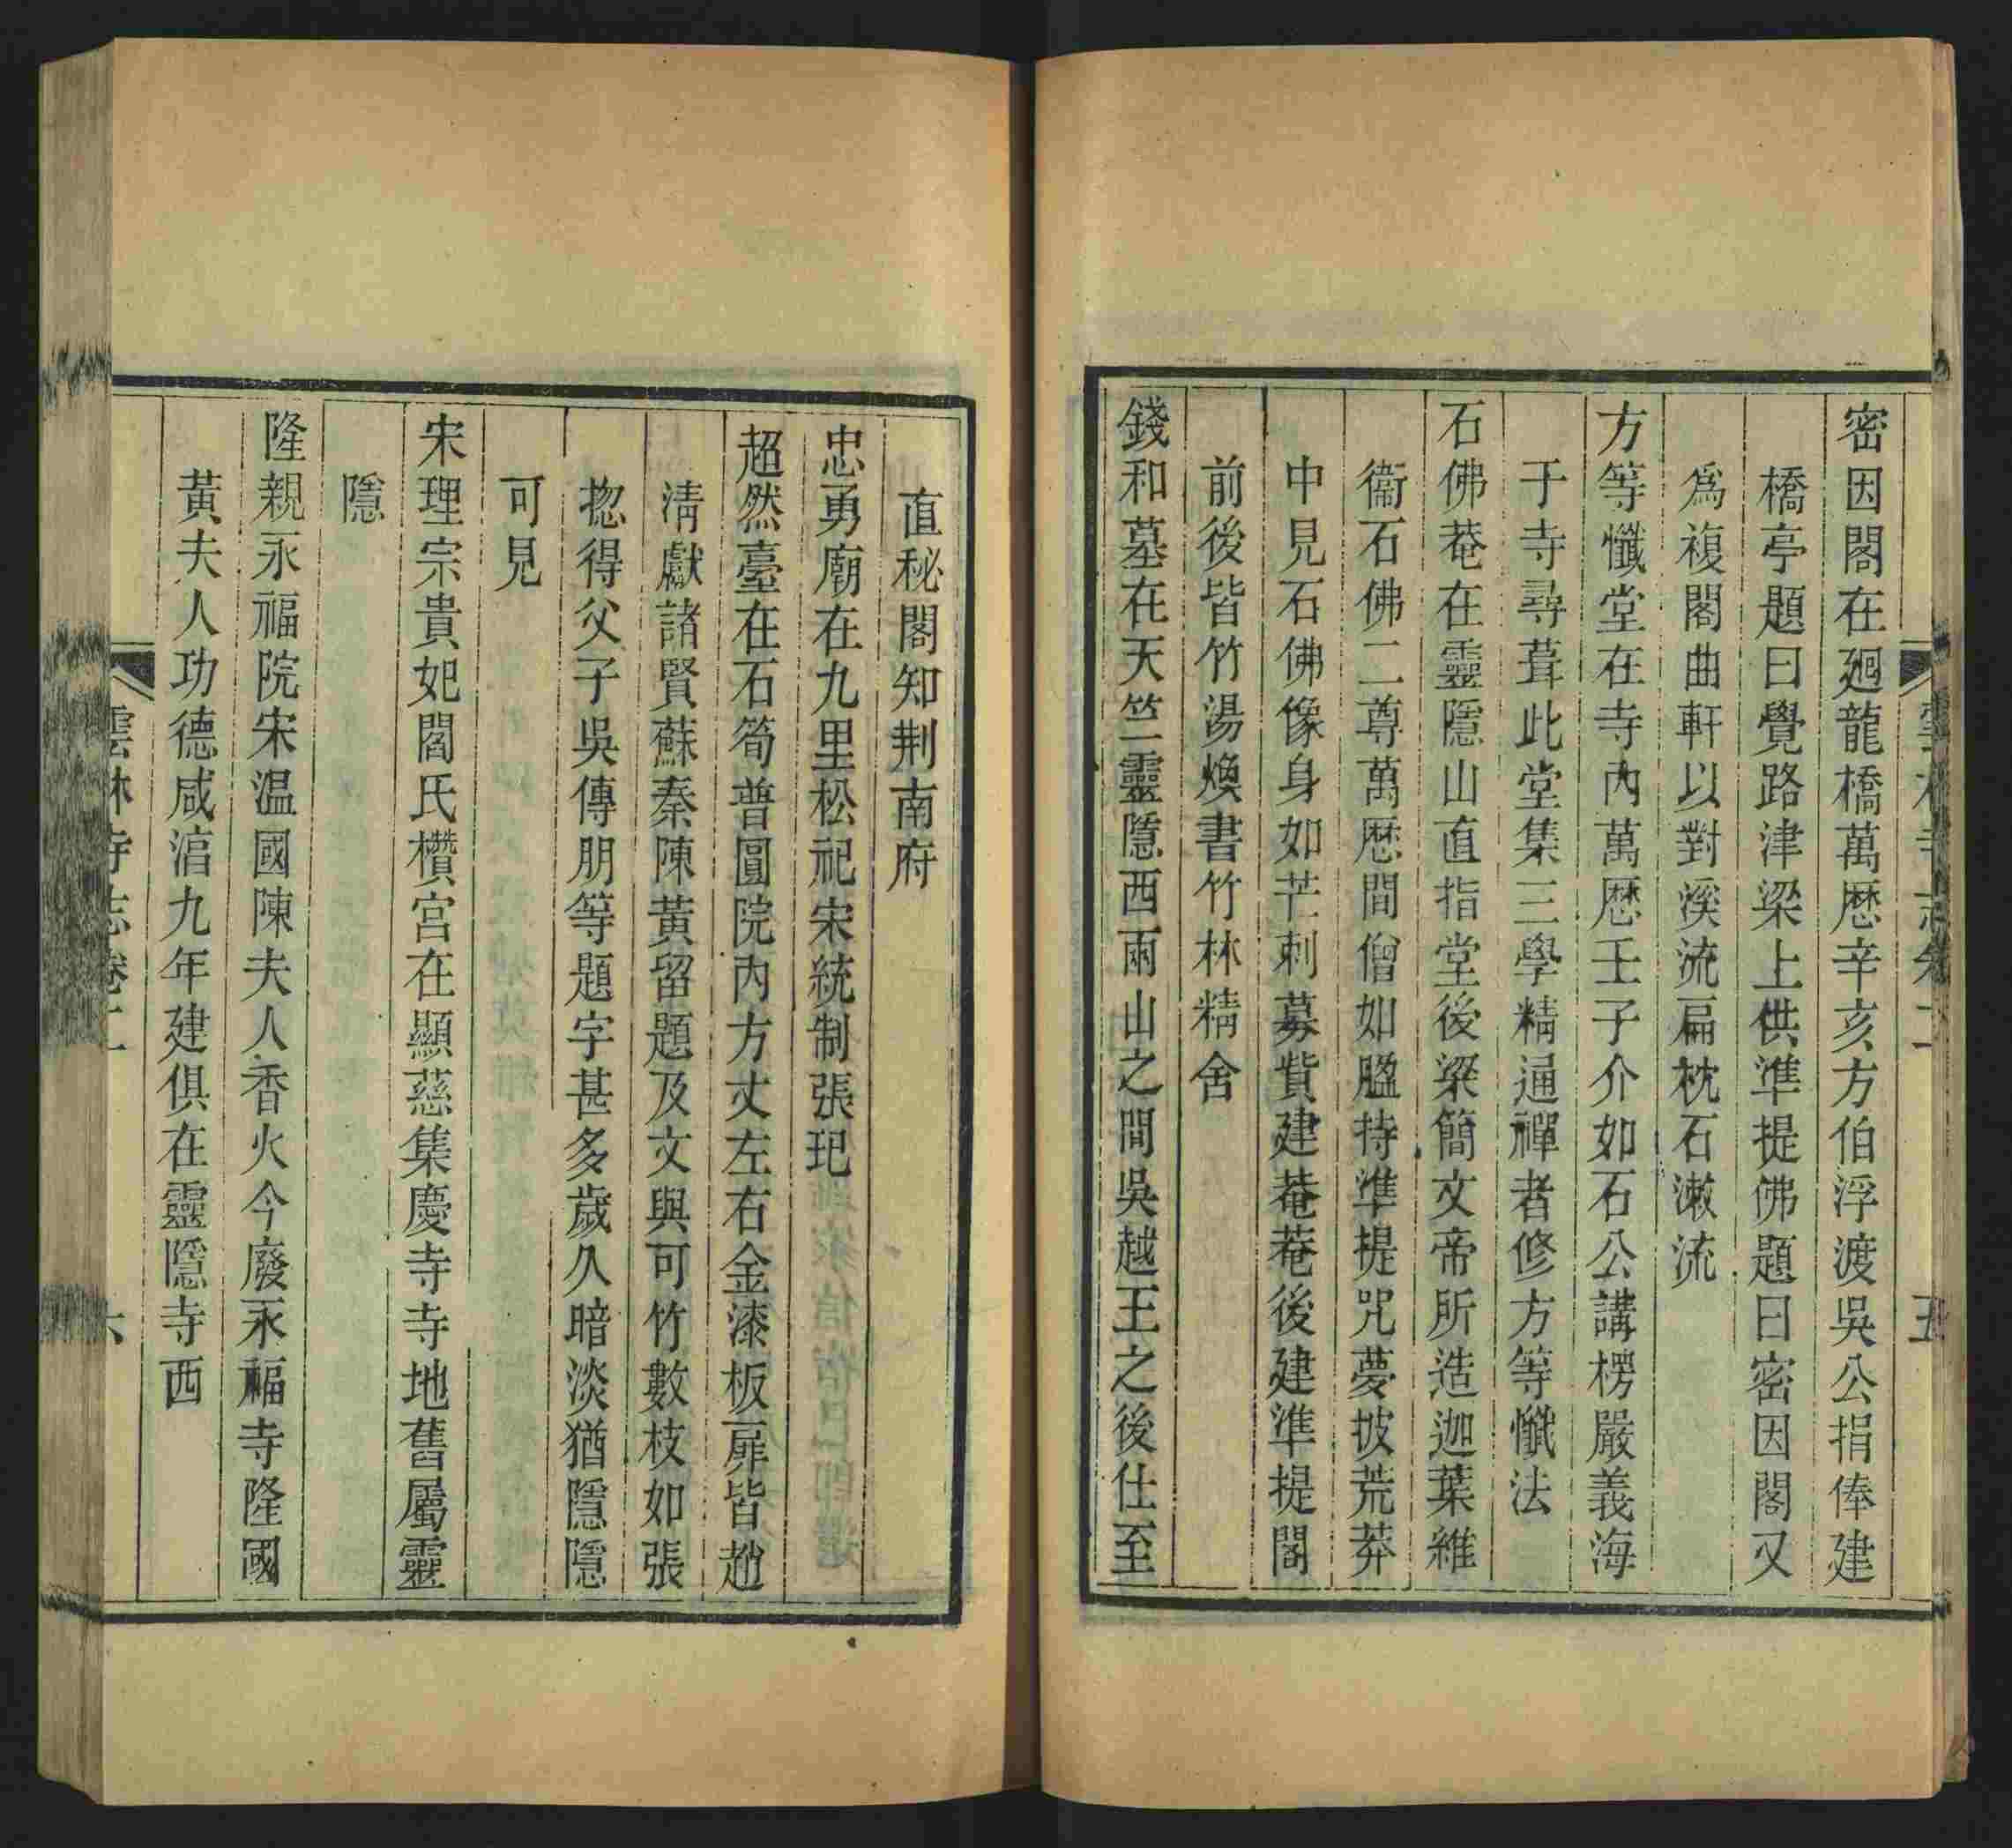 密因閣在廻龍橋萬厯辛亥方伯浮渡吳公捐俸建
橋亭題曰覺路津梁上供準提佛題曰密因閣又
爲複閣曲軒以對溪流扁枕石漱流
方等懺堂在寺內萬厯壬子介如石公講楞嚴義海
于寺尋葺此堂集三學精通禪者修方等懺法
石佛菴在靈隱山直指堂後梁簡文帝所造迦葉維
衞石佛二尊萬厯間僧如膃持準提咒夢披荒莽
中見石佛像身如芒刺募貲建菴菴後建準提閣
前後皆竹湯煥書竹林精舍
錢和墓在天竺靈隱西兩山之間吳越王之後仕至
直秘閣知荆南府
忠勇廟在九里松祀宋統制張玘
超然臺在石筍普圓院內方丈左右金漆板扉皆趙
淸獻諸賢蘇秦陳黃留題及文與可竹數枝如張
揔得父子吳傳朋等題字甚多歲久暗淡猶隱隱
可見
宋理宗貴妃閻氏欑宮在顯慈集慶寺寺地舊屬靈
隱
隆親永福院宋温國陳夫人香火今廢永福寺隆國
黃夫人功德咸淯九年建俱在靈隱寺西
雲林寺志卷二
六